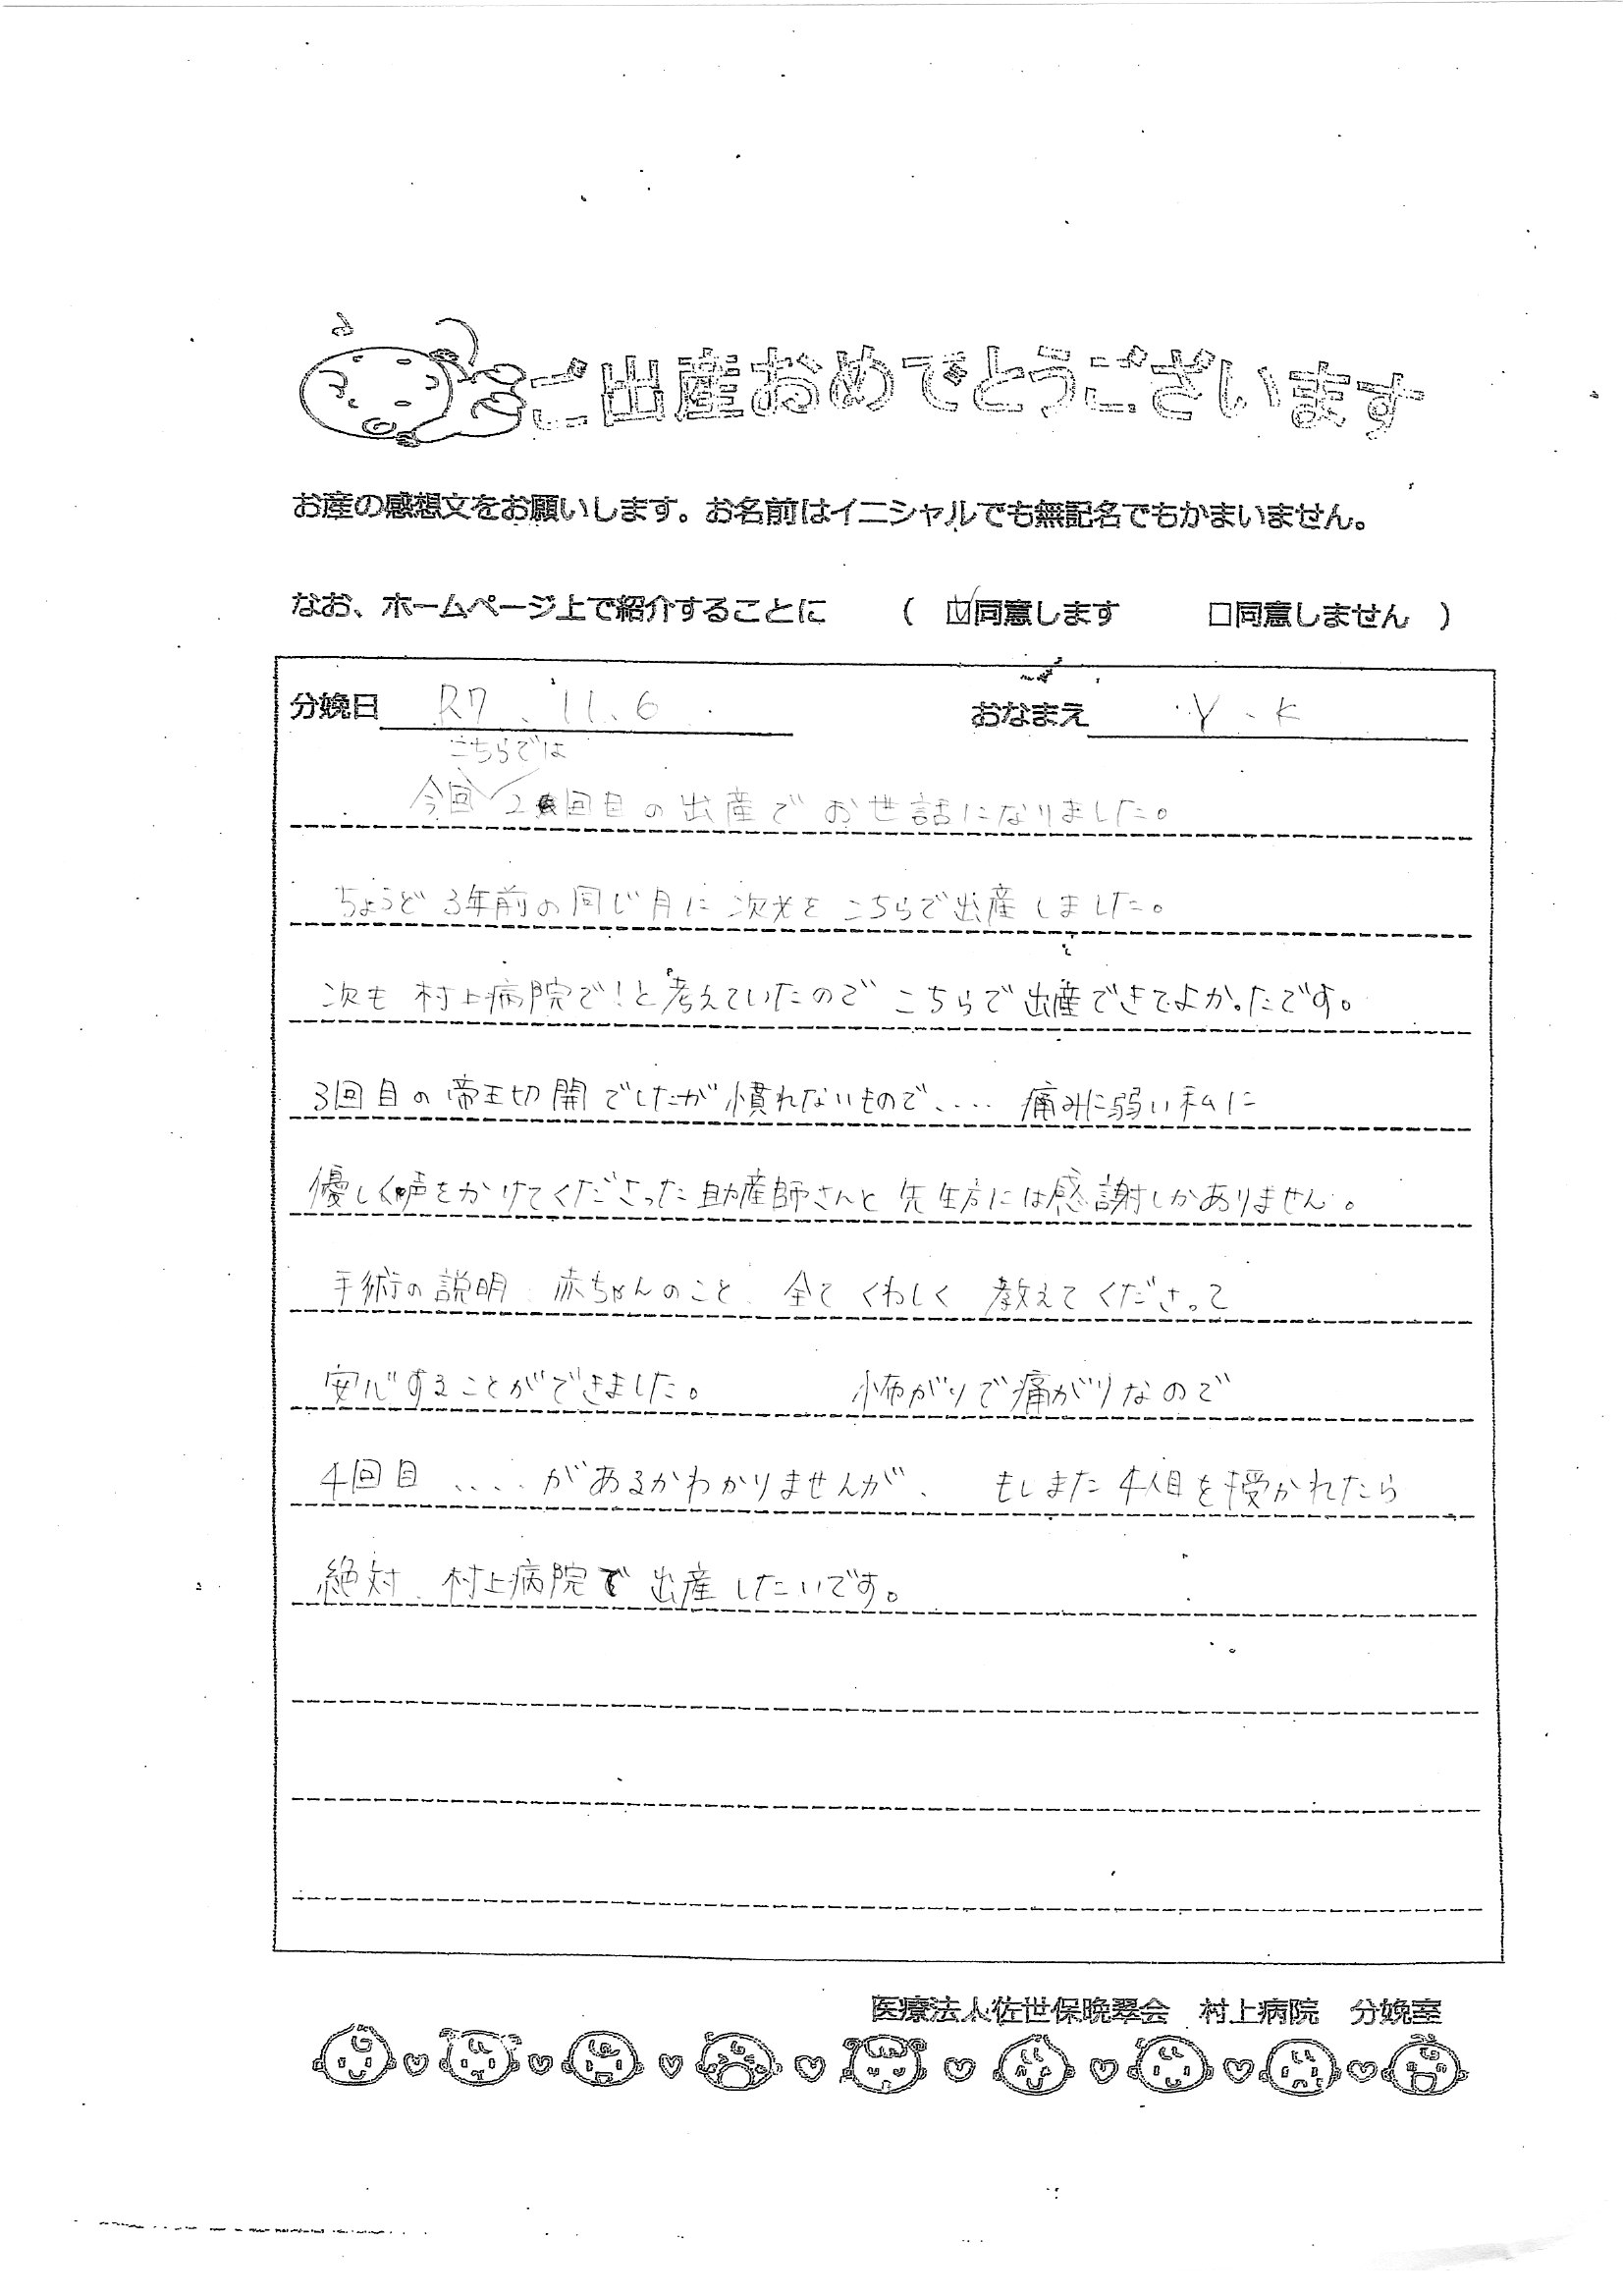 ご出産おめでとうございます
お産の感想文をお願いします。お名前はイニシャルでも無記名でもかまいません。
なお、ホームページ上で紹介することに （ ☑同意します □同意しません ）
分娩日 R7.11.6 おなまえ Y.K
こちらでは
今回 2回目の出産で お世話になりました。
ちょうど 3年前の同じ月に 次光を こちらで出産しました。
次も 村上病院で!と考えていたので こちらで出産できてよかったです。
3回目の帝王切開でしたが慣れないもので、... 痛みに弱い私に
優しく声をかけてくださった助産師さんと 先生方には感謝しかありません。
手術の説明 赤ちゃんのこと 全て くわしく 教えてくださって
安心することができました。 怖がりで痛がりなので
4回目 ....があるかわかりませんが、 もしまた4人目を授かれたら
絶対 村上病院で 出産したいです。
医療法人佐世保晩翠会 村上病院 分娩室